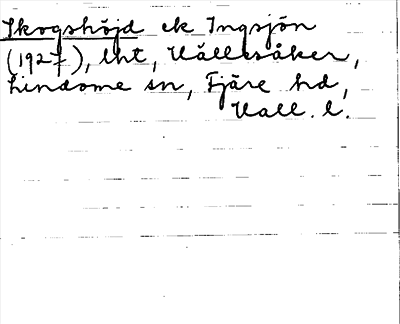 Skogshöjd ek Ingsjön
(1927), lht, Hällesåker,
Lindome sn, Fjäre hd,
Hall. l.